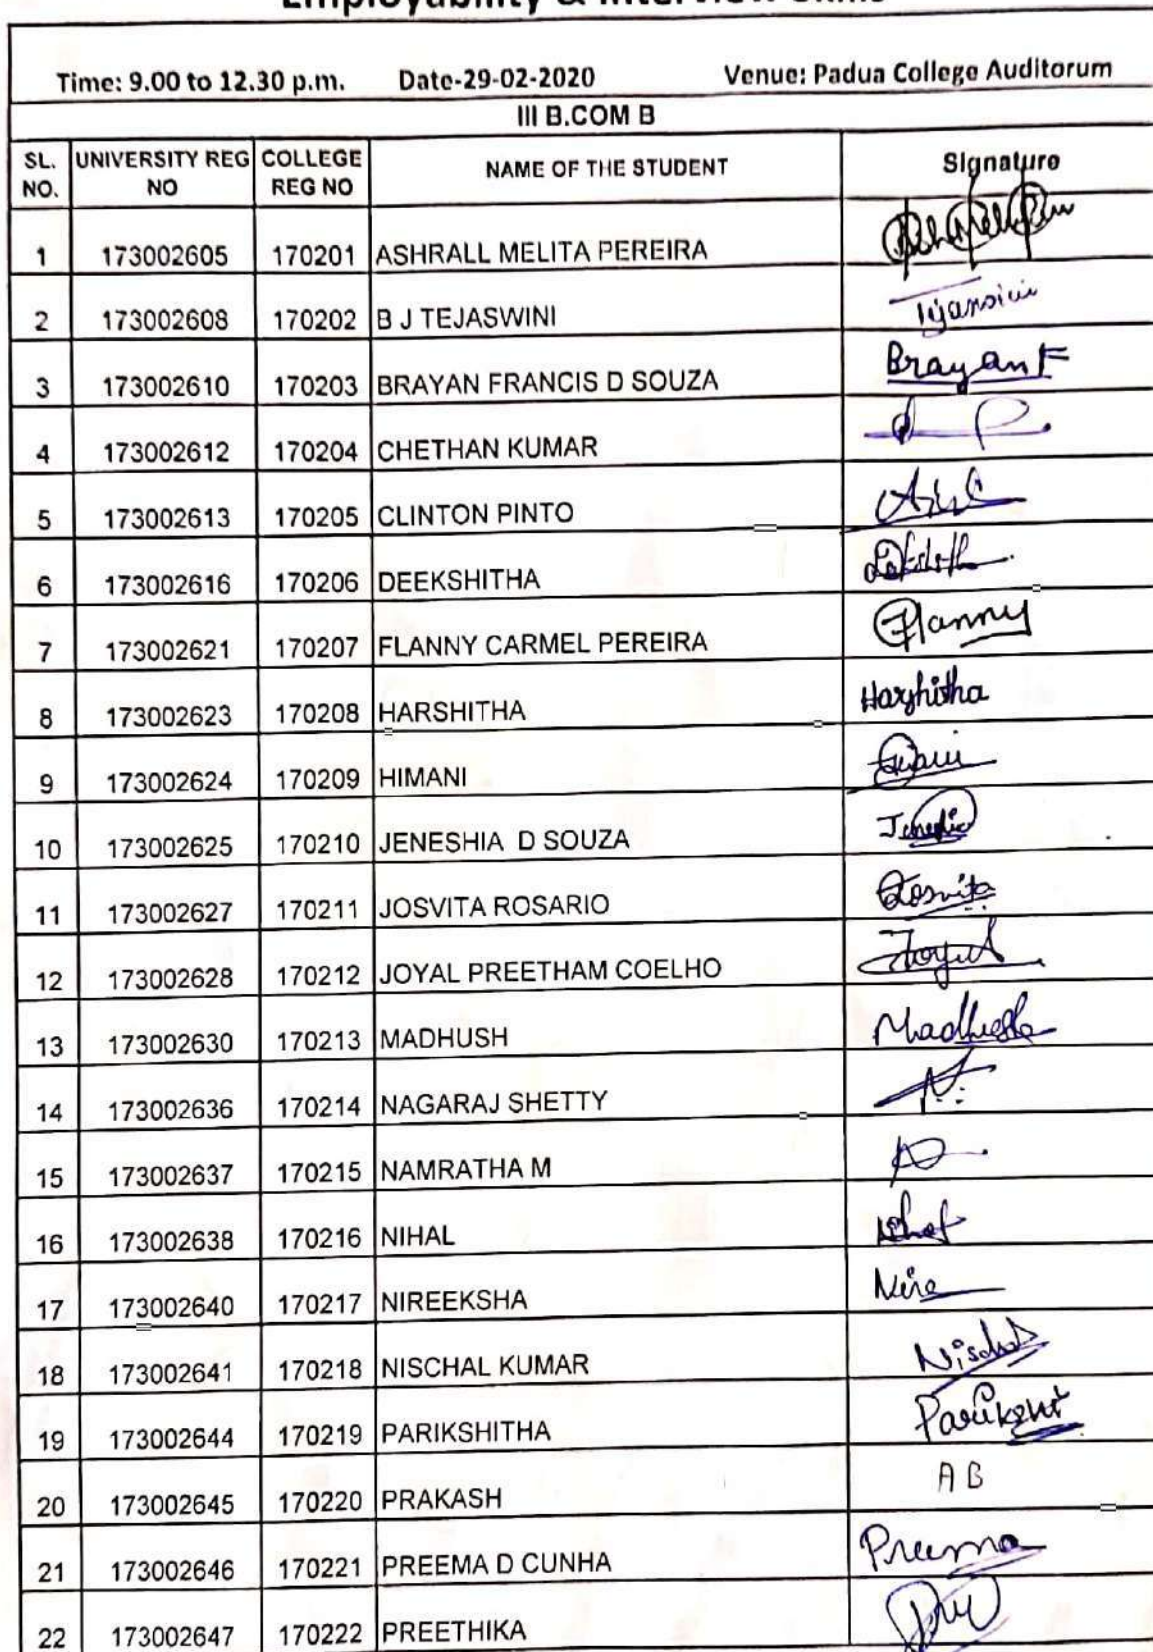 Employability & Interview Skills
Time: 9.00 to 12.30 p.m. Date-29-02-2020 Venue: Padua College Auditorum
III B.COM B
SL. NO. UNIVERSITY REG NO COLLEGE REG NO NAME OF THE STUDENT Signature
1 173002605 170201 ASHRALL MELITA PEREIRA
2 173002608 170202 B J TEJASWINI
3 173002610 170203 BRAYAN FRANCIS D SOUZA Brayan F
4 173002612 170204 CHETHAN KUMAR
5 173002613 170205 CLINTON PINTO
6 173002616 170206 DEEKSHITHA
7 173002621 170207 FLANNY CARMEL PEREIRA Flanny
8 173002623 170208 HARSHITHA Harshitha
9 173002624 170209 HIMANI
10 173002625 170210 JENESHIA D SOUZA
11 173002627 170211 JOSVITA ROSARIO Josvita
12 173002628 170212 JOYAL PREETHAM COELHO
13 173002630 170213 MADHUSH
14 173002636 170214 NAGARAJ SHETTY
15 173002637 170215 NAMRATHA M
16 173002638 170216 NIHAL
17 173002640 170217 NIREEKSHA Nire
18 173002641 170218 NISCHAL KUMAR Nischal
19 173002644 170219 PARIKSHITHA
20 173002645 170220 PRAKASH A B
21 173002646 170221 PREEMA D CUNHA Preema
22 173002647 170222 PREETHIKA